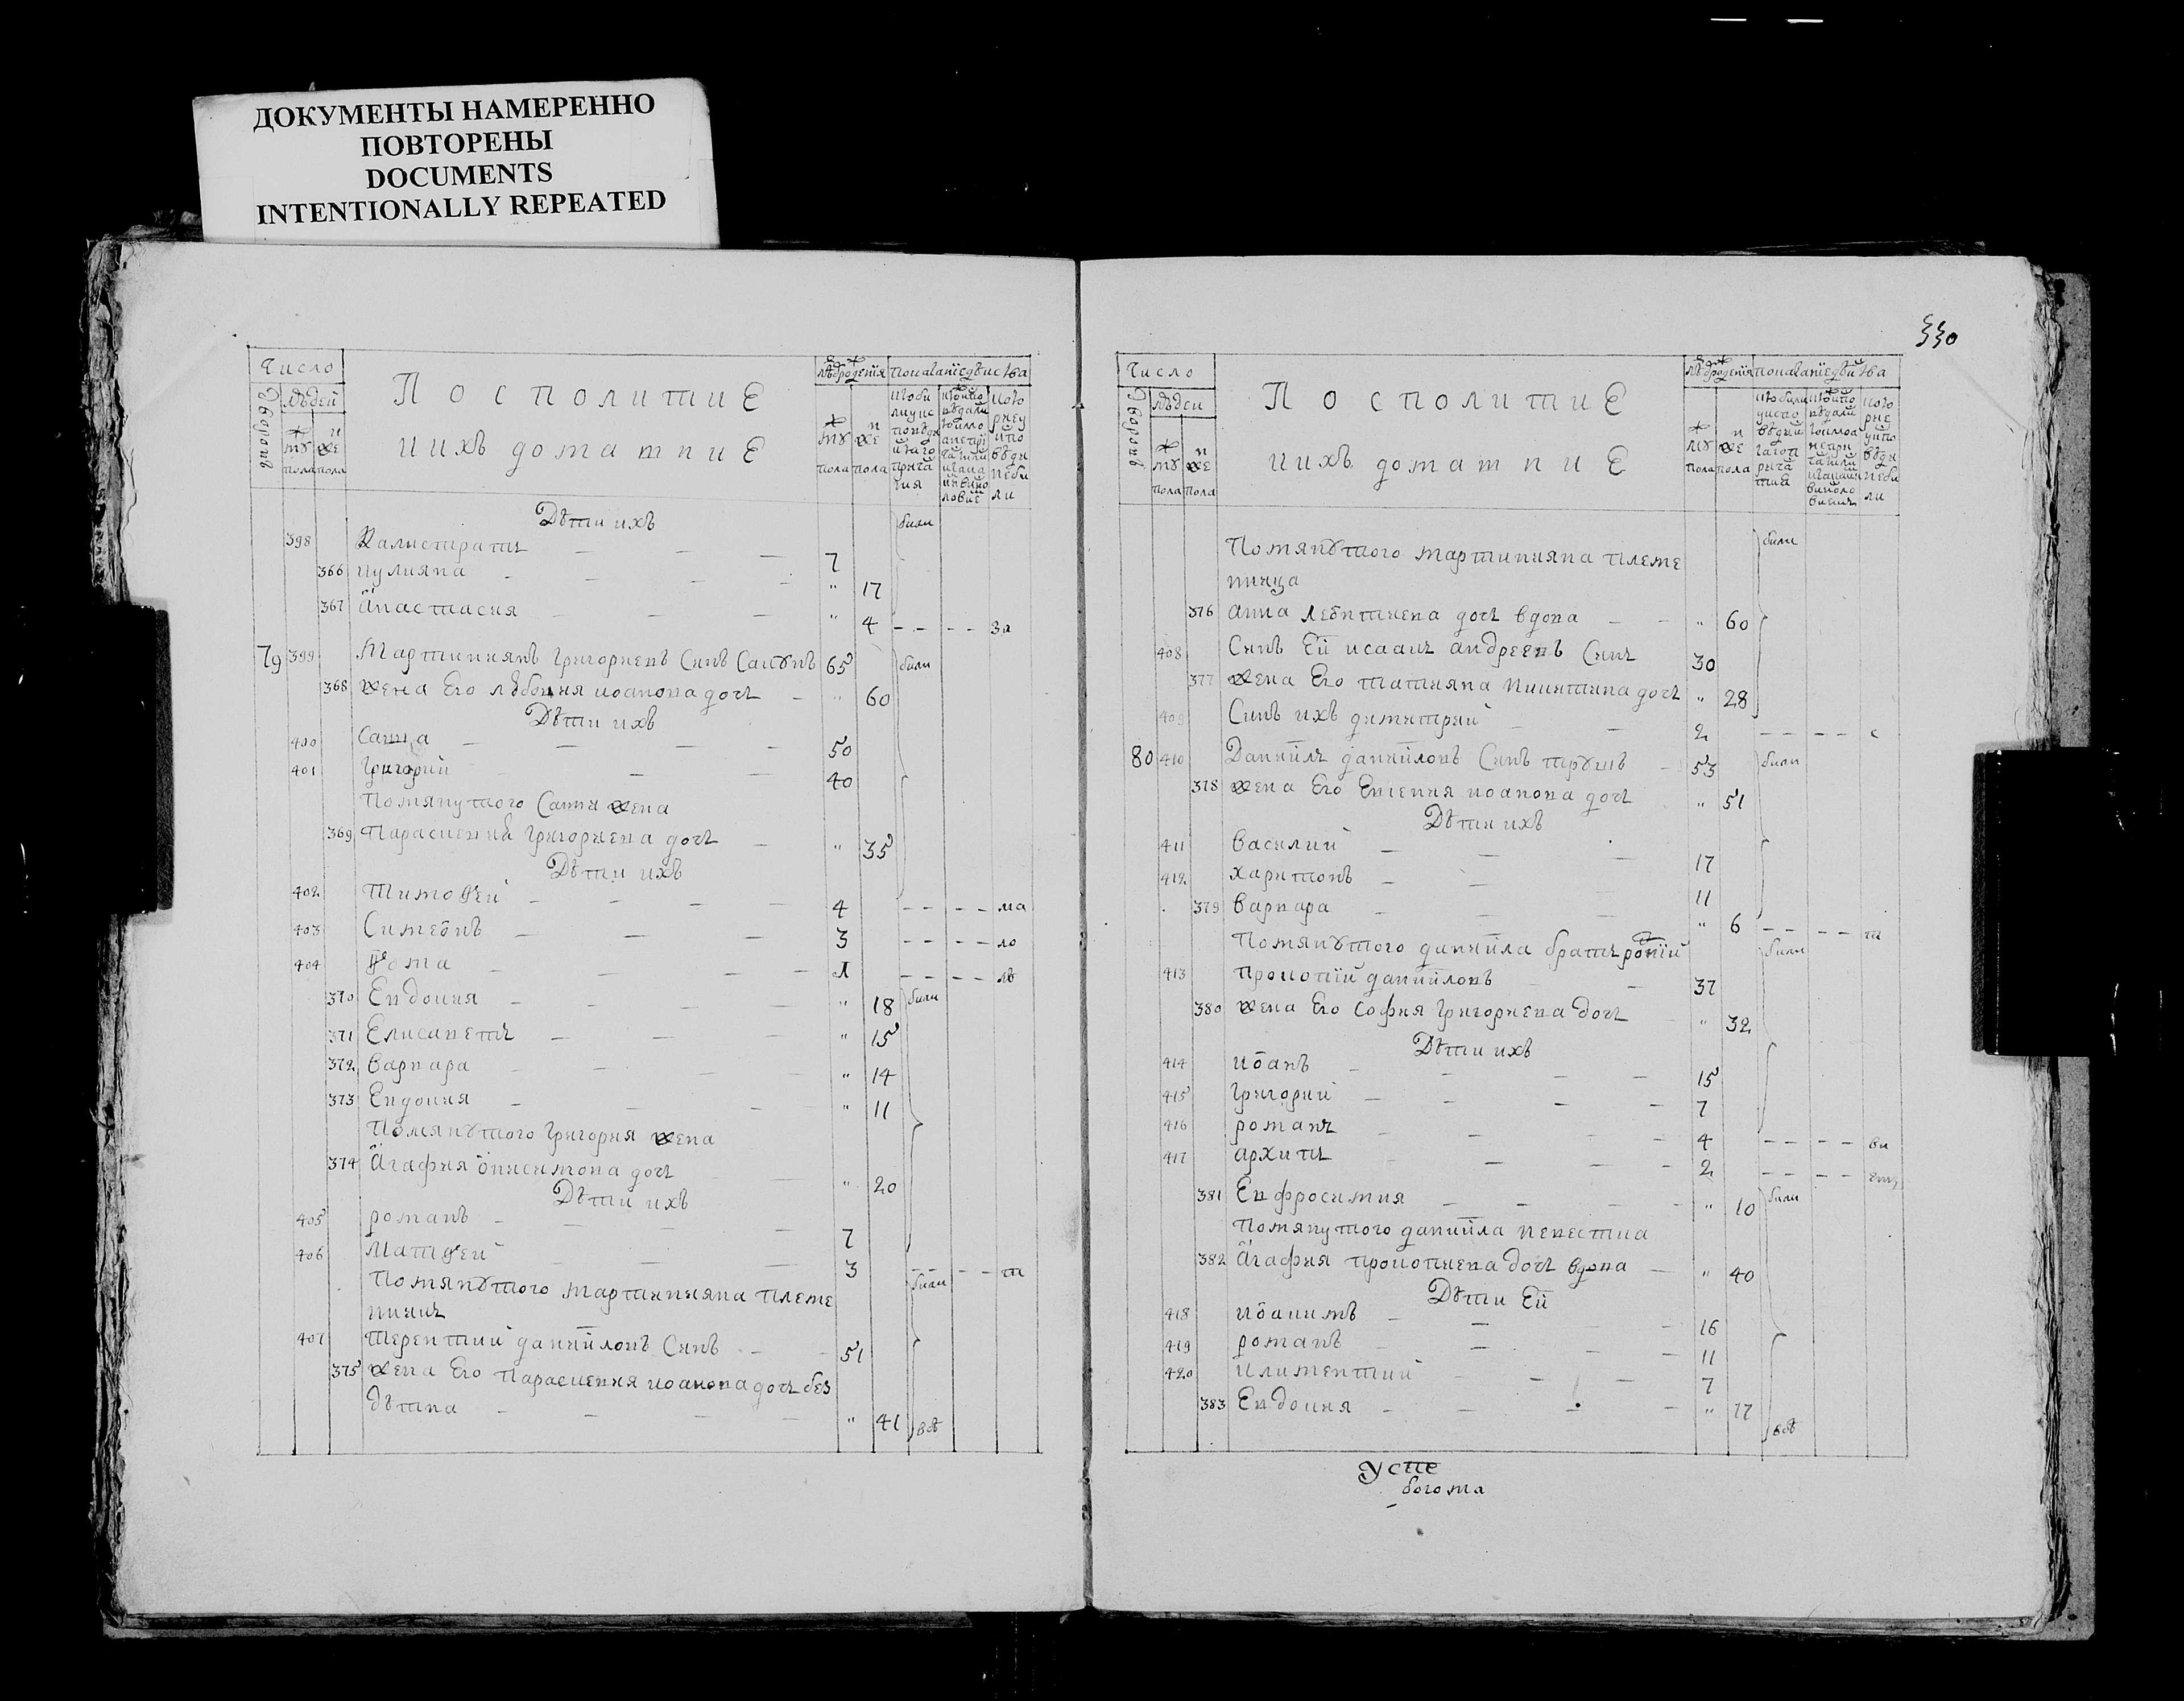 ДОКУМЕНТЫ НАМЕРЕННО
ПОВТОРЕНЫ
DOCUMENTS
INTENTIONALLY REPEATED
Число
Дворовъ
людей
муж пола
женс пола
Посполитие
и ихъ домашние
муж пола
женс пола
Дѣти ихъ
398 Калистратъ 7 били
366 Иулияна " 17
367 Анастасия " 4 за
79 399 Мартинианъ Григориевъ Синъ 65 били
368 жена Его Иоанова дочъ " 60
Дѣти ихъ
400 Савва 50
401 Григорий 40
Помянутого Саввы жена
369 Параскевия Григориева дочъ " 35
Дѣти ихъ
402 Тимофей 4 ма
403 Симеонъ 3 ло
404 Фома 1 лѣ
370 Евдокия " 18 били
371 Елисаветъ " 15
372 Варвара " 14
373 Евдокия " 11
Помянутого Григория жена
374 Агафия Онисимова дочъ " 20
Дѣти ихъ
405 Романъ 7
406 Матфей 3 т
Помянутого Мартинияна племе
никъ били
407 Терентий Данийловъ Синъ 51
375 жена Его Параскевия Иоанова дочъ без
дѣтна " 41 всѣ
330
Число
Дворовъ
людей
муж пола
женс пола
Посполитие
и ихъ домашние
муж пола
женс пола
Помянутого Мартинияна племе
ница били
376 Анна Леонтиева дочъ вдова " 60
408 Синъ Ей Исаакъ Андреевъ Синъ 30
377 жена Его Татияна Никитина дочъ " 28
409 Синъ ихъ Димитрий 2 с
80 410 Данийлъ Данийловъ Синъ 53 били
378 жена Его Евгения Иоанова дочъ " 51
Дѣти ихъ
411 Василий 17
412 Харитонъ 11
379 Варвара " 6 т
Помянутого Данийла братъ били
413 Прокопий Данийловъ 37
380 жена Его София Григориева дочъ " 32
Дѣти ихъ
414 Иоанъ 15
415 Григорий 7
416 Романъ 4 ви
417 Архипъ 2
381 Евфросимия " 10 били
Помянутого Данийла невестка
382 Агафия Прокопиева дочъ вдова " 40
Дѣти Ей
418 Иоакимъ 16
419 Романъ 11
420 Климентий 7
383 Евдокия " 17 всѣ
Усте
богома